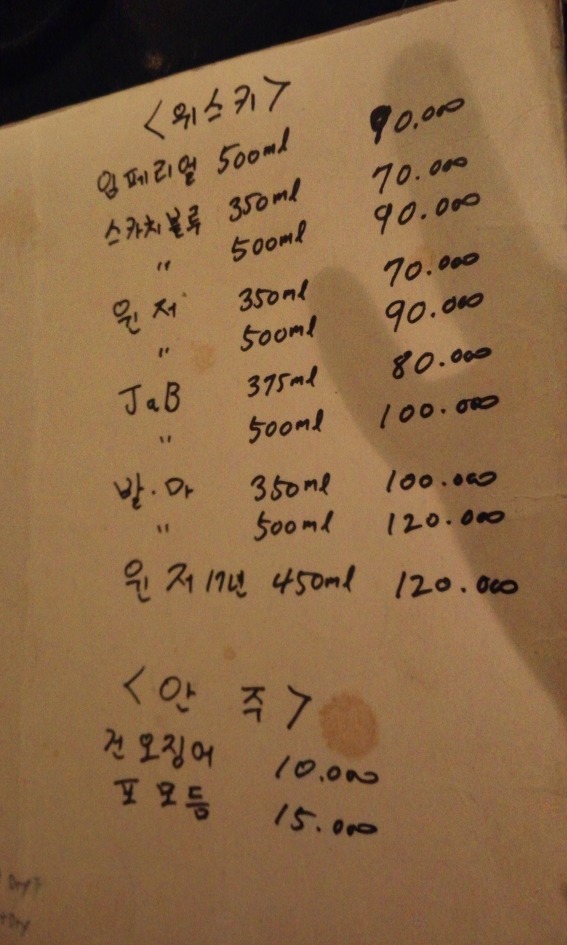 <위스키>
임페리얼 500ml 90.000
스카치블루 350ml 70.000
" 500ml 90.000
윈저 350ml 70.000
" 500ml 90.000
JaB 375ml 80.000
" 500ml 100.000
발.마 350ml 100.000
" 500ml 120.000
윈저 17년 450ml 120.000
<안 주>
건오징어 10.000
포모듬 15.000
Dry
Dry